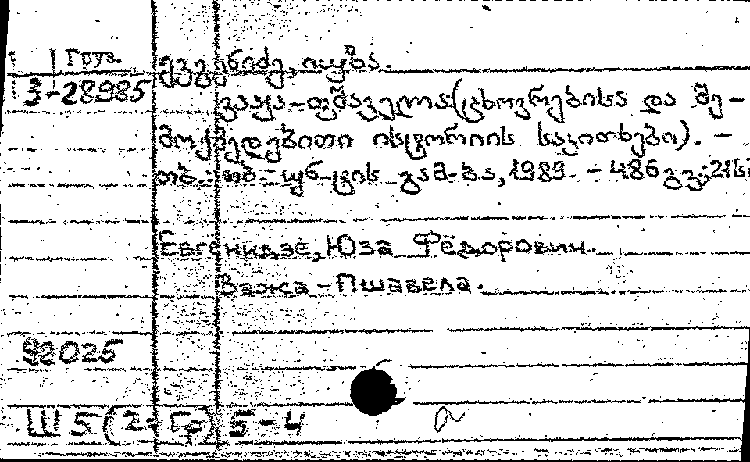 Груз
3-28985
ევგენიძე, იუზა.
ვაჟა-ფშაველა (ცხოვრებისა და შე-
მოქმედებითი ისტორიის საკითხები). -
თბ.: თბ. უნ-ტის გამ-ბა, 1989. - 486 გვ.; 21სმ
Евгенидзе, Юза Фёдорович.
Важа-Пшавела.
92025
Ш5(2=Гр)5-4